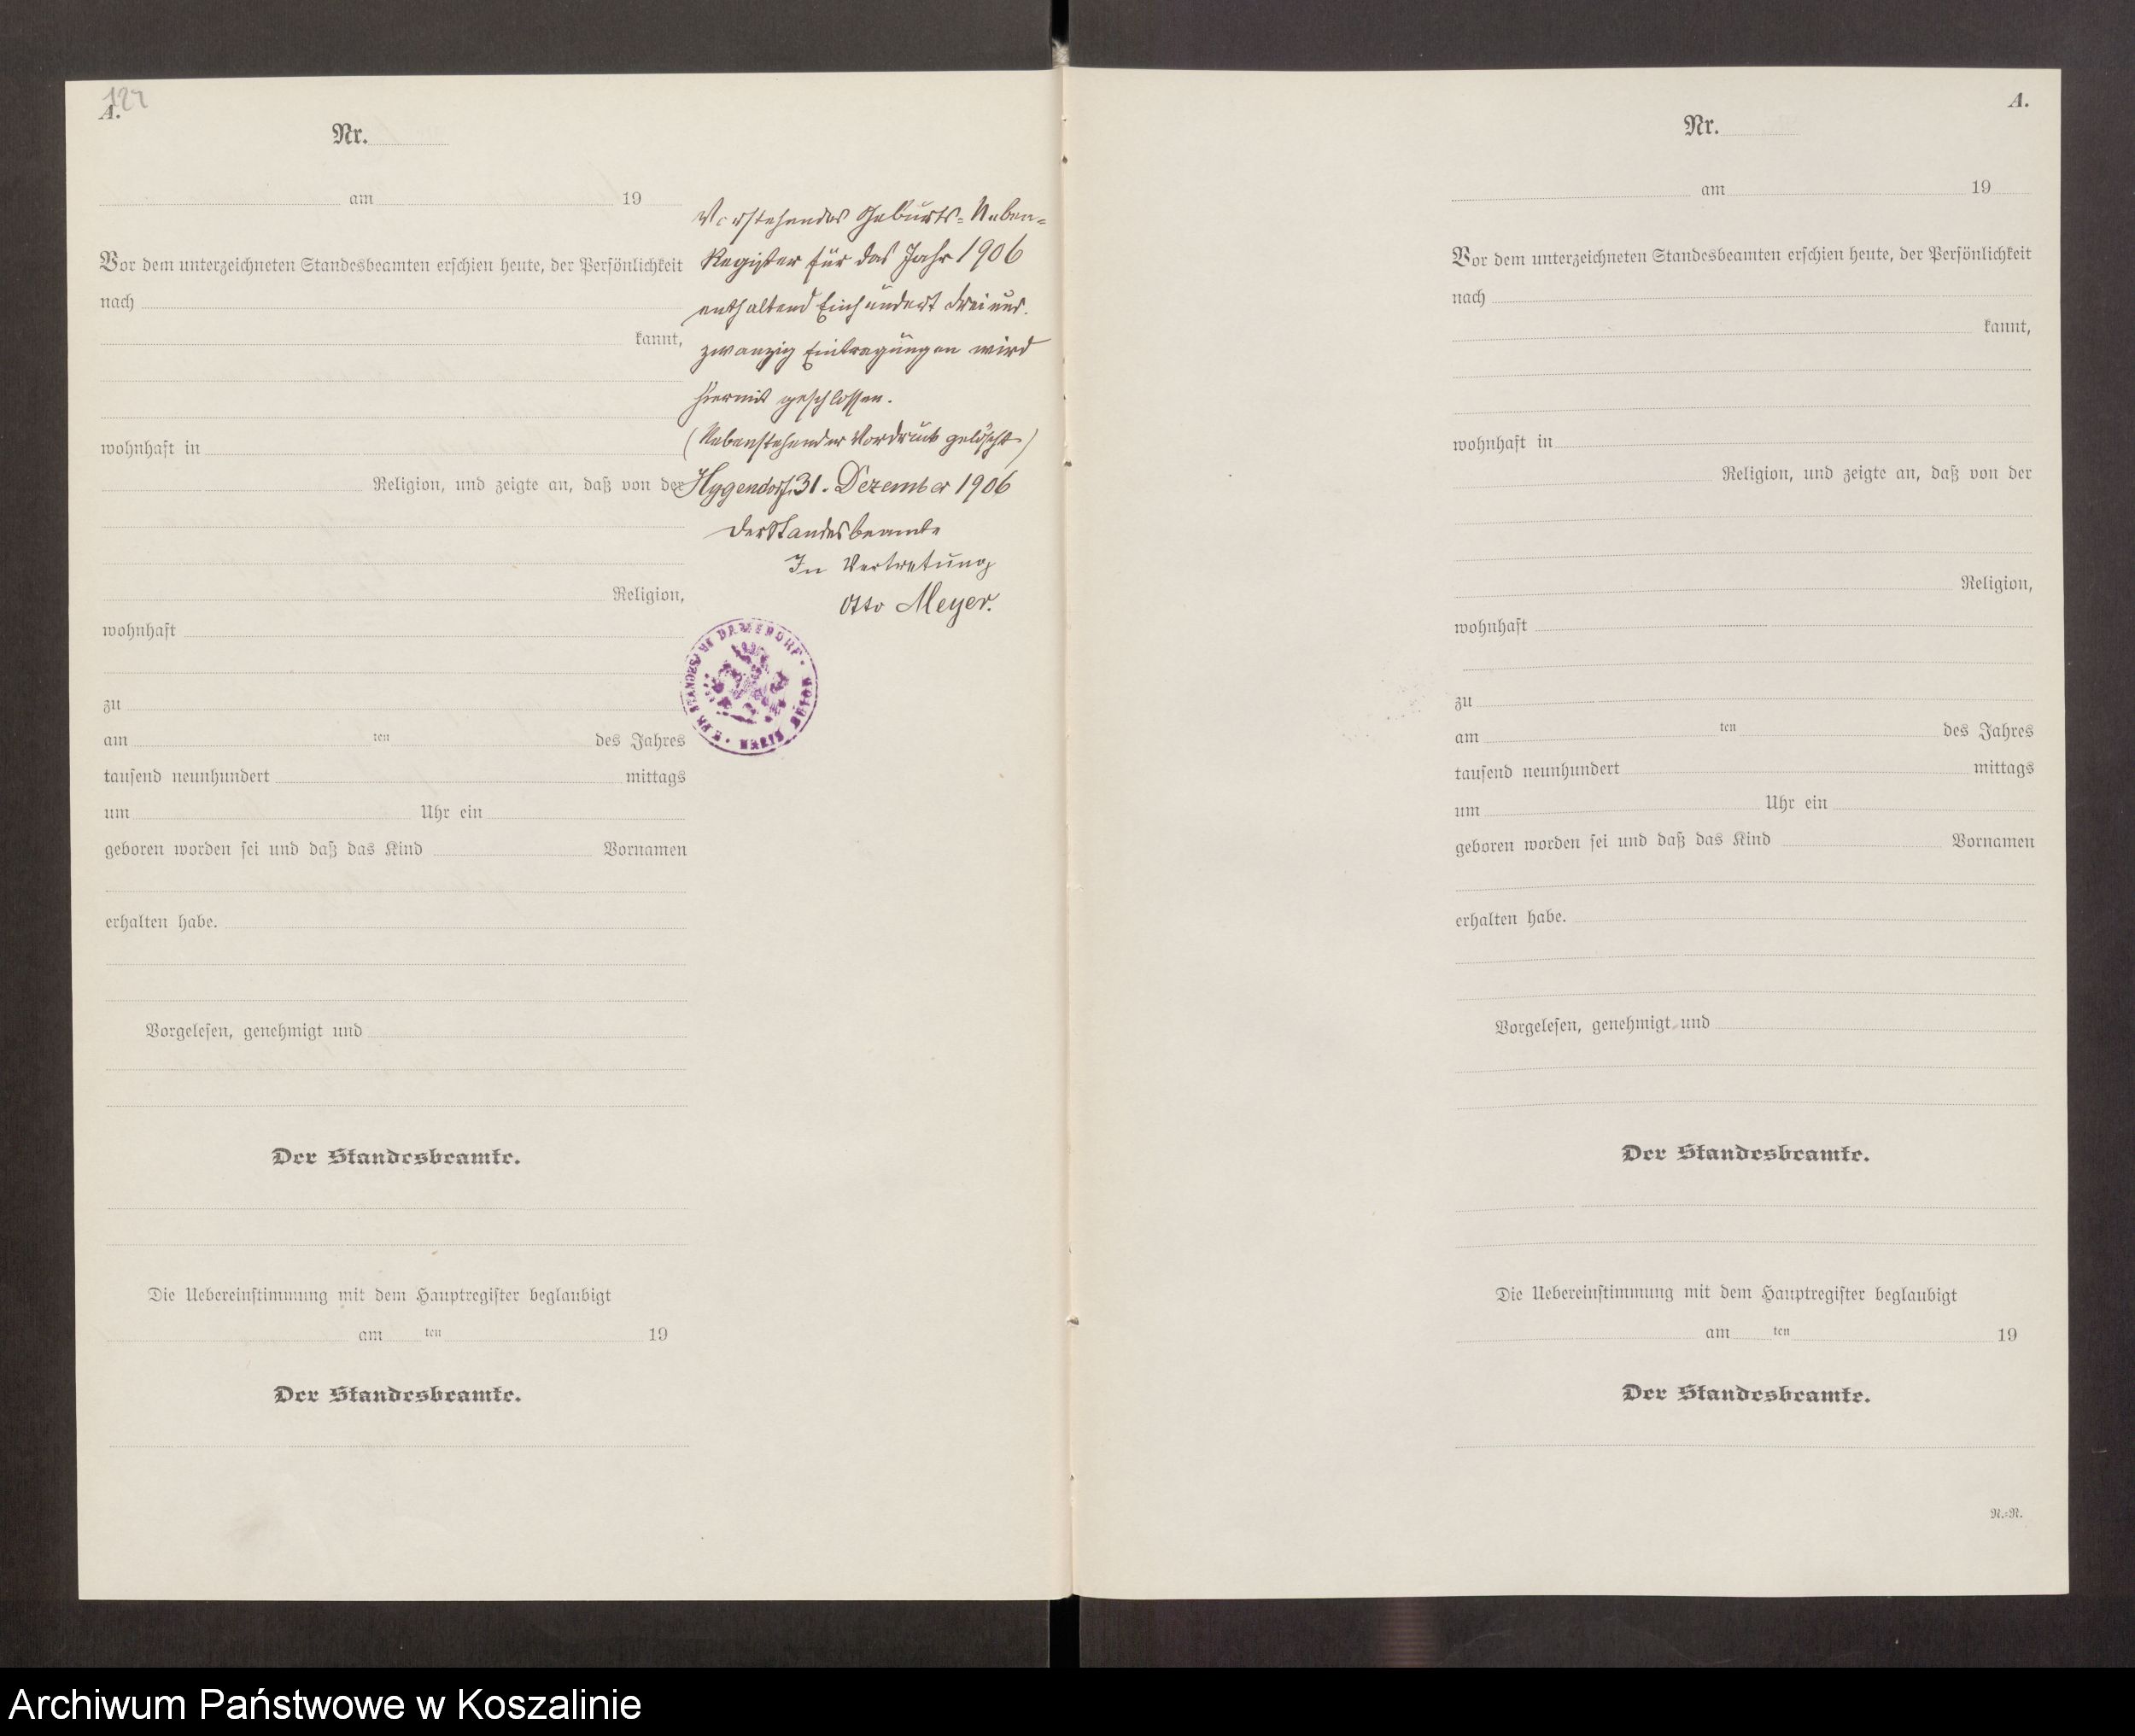 127
A.
Nr.
am 19
Vor dem unterzeichneten Standesbeamten erschien heute, der Persönlichkeit
nach
kannt,
wohnhaft in
Religion, und zeigte an, daß von der
Religion,
wohnhaft
zu
am ten des Jahres
tausend neunhundert mittags
um Uhr ein
geboren worden sei und daß das Kind Vornamen
erhalten habe.
Vorgelesen, genehmigt und
Der Standesbeamte.
Die Uebereinstimmung mit dem Hauptregister beglaubigt
am ten 19
Der Standesbeamte.
Vorstehendes Geburts-Neben-
Register für das Jahr 1906
enthaltend Einhundert dreiund-
zwanzig Eintragungen wird
hiermit geschlossen.
(Nebenstehender Vordruck gelöscht)
31. Dezember 1906
Der Standesbeamte
In Vertretung
Otto Meyer.
DAMERDORF
KREIS BÜTOW
A.
Nr.
am 19
Vor dem unterzeichneten Standesbeamten erschien heute, der Persönlichkeit
nach
kannt,
wohnhaft in
Religion, und zeigte an, daß von der
Religion,
wohnhaft
zu
am ten des Jahres
tausend neunhundert mittags
um Uhr ein
geboren worden sei und daß das Kind Vornamen
erhalten habe.
Vorgelesen, genehmigt und
Der Standesbeamte.
Die Uebereinstimmung mit dem Hauptregister beglaubigt
am ten 19
Der Standesbeamte.
N.=N.
Archiwum Państwowe w Koszalinie